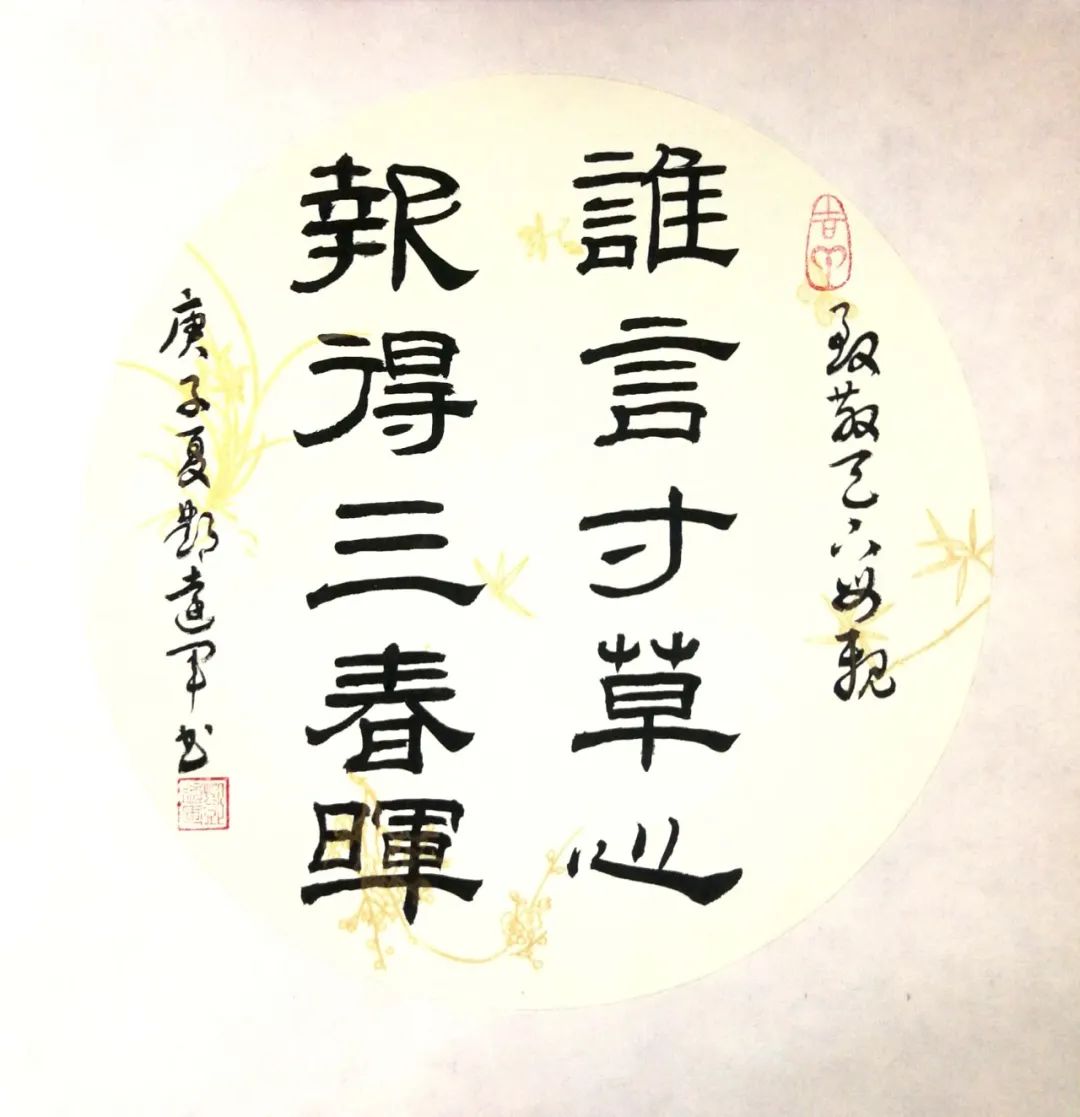 致敬天下母親
誰言寸草心
報得三春暉
庚子夏達軍书